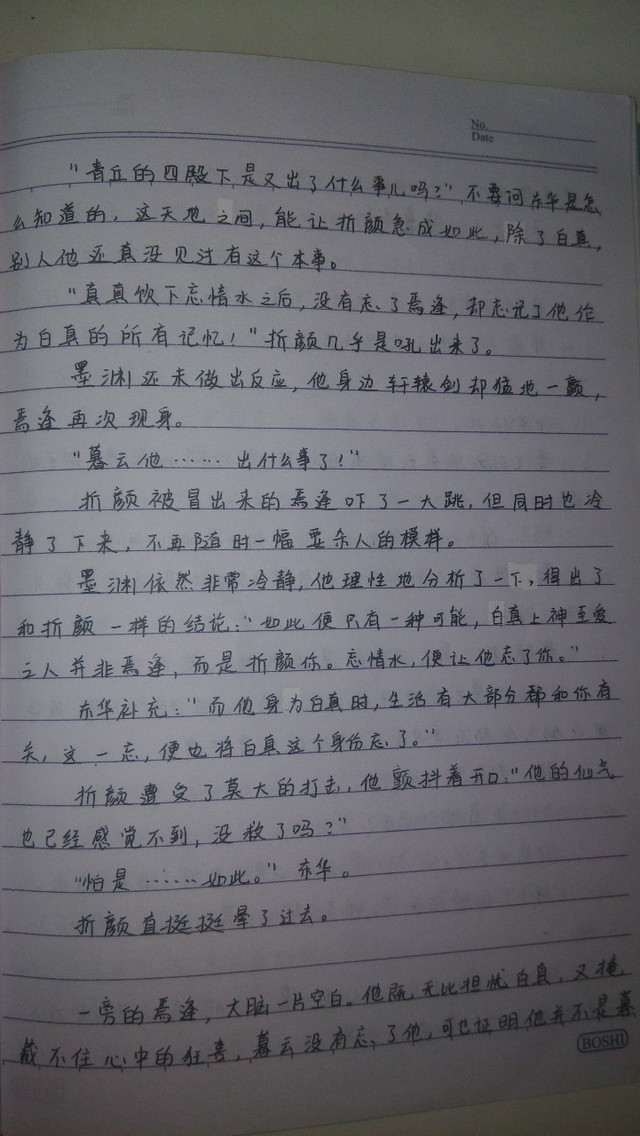 No.
Date
"青丘的四殿下是又出了什么事儿吗?"不要问东华是怎
么知道的,这天地之间,能让折颜急成如此,除了白真,
别人他还真没见过有这个本事。
"真真饮下忘情水之后,没有忘了焉逢,却忘记了他作
为白真的所有记忆!"折颜几乎是吼出来了。
墨渊还未做出反应,他身边轩辕剑却猛地一颤,
焉逢再次现身。
"暮云他……出什么事了!"
折颜被冒出来的焉逢吓了一大跳,但同时也冷
静了下来,不再随时一幅要杀人的模样。
墨渊依然非常冷静,他理性地分析了一下,得出了
和折颜一样的结论:"如此便只有一种可能,白真上神至爱
之人并非焉逢,而是折颜你。忘情水,便让他忘了你。"
东华补充:"而他身为白真时,生活有大部分都和你有
关,这一忘,便也将白真这个身份忘了。"
折颜遭受了莫大的打击,他颤抖着开口:"他的仙气
也已经感觉不到,没救了吗?"
"怕是……如此。"东华。
折颜直挺挺晕了过去。
一旁的焉逢,大脑一片空白。他既无比担忧白真,又掩
藏不住心中的狂喜,暮云没有忘了他,可也证明他并不是暮
BOSHI